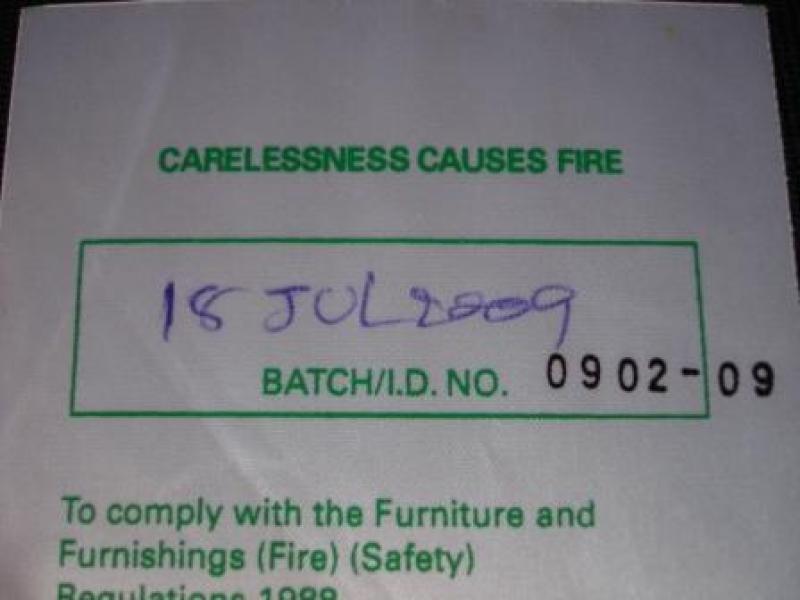 CARELESSNESS CAUSES FIRE
18 JUL 2009
BATCH/I.D. NO. 0902-09
To comply with the Furniture and
Furnishings (Fire) (Safety)
Regulations 1988